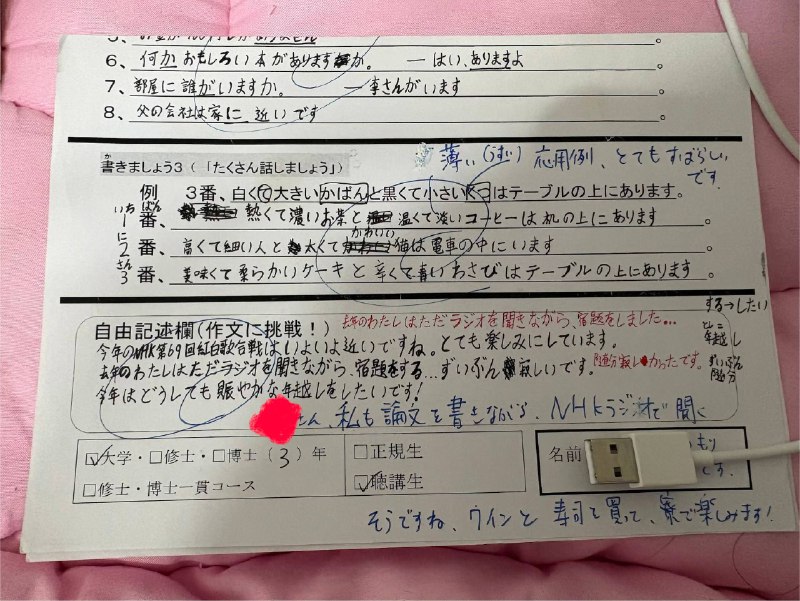 6、何かおもしろい本がありますか。 ― はい、ありますよ 。
7、部屋に誰がいますか。 ― 李さんがいます 。
8、父の会社は家に近いです 。
薄い(うすい) 応用例、とてもすばらしい
です.
書きましょう3（「たくさん話しましょう」）
例 3番、白くて大きいかばんと黒くて小さいくつはテーブルの上にあります。
いちばん
1番、 熱くて濃いお茶と 温くて淡いコーヒーは机の上にあります 。
に
かわいい
2番、高くて細い人と太くて猫は電車の中にいます 。
さん
3番、美味くて柔らかいケーキと辛くて青いわさびはテーブルの上にあります 。
する→したい
自由記述欄(作文に挑戦！)
去年のわたしはただラジオを聞きながら、宿題をしました...
今年のNHK第69回紅白歌合戦はいよいよ近いですね。とても楽しみにしています。
としこ
年越し
去年のわたしはただラジオを聞きながら、宿題をする...ずいぶん寂しいです。
随分寂しかったです。
ずいぶん
随分
今年はどうしても賑やかな年越しをしたいです！
さん、私も論文を書きながら、NHKラジオで聞く
大学・□修士・□博士（3）年
□正規生
名前
もり
です.
□修士・博士一貫コース
聴講生
そうですね、ワインと寿司を買って、寮で楽しみます！